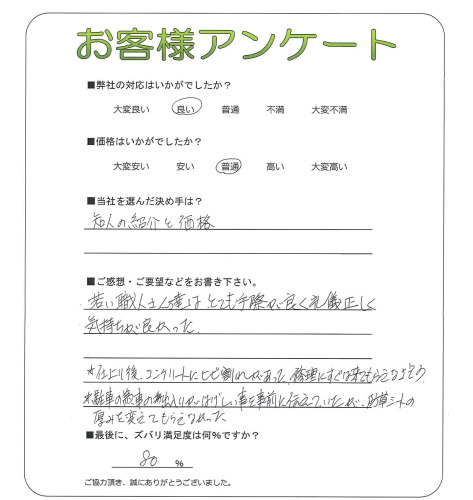 お客様アンケート
■弊社の対応はいかがでしたか？
大変良い 良い 普通 不満 大変不満
■価格はいかがでしたか？
大変安い 安い 普通 高い 大変高い
■当社を選んだ決め手は？
知人の紹介と価格
■ご感想・ご要望などをお書き下さい。
若い職人さん達はとても手際が良く礼儀正しく
気持ちが良かった。
＊仕上り後、コンクリートにヒビ割れがあった、修理にすぐは来てもらえなそう
＊駐車の出入りがはげしい事を事前に伝えていたが、防草シートの
厚みを変えてもらえなかった。
■最後に、ズバリ満足度は何%ですか？
80 %
ご協力頂き、誠にありがとうございました。